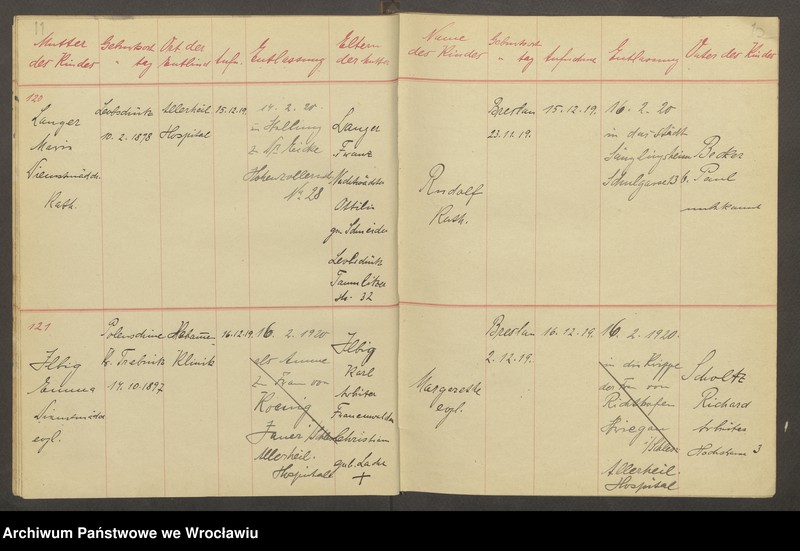 Mutter der Kinder
Geburtsort " tag
Ort der Entbind
Aufn.
Entlassung
Eltern der Mutter
Name der Kinder
Geburtsort " tag
Aufnahme
Entlassung
Vater der Kinder
120
Langer
Maria
Dienstmädch.
Kath.
Leobschütz
10. 2. 1898
Allerheil
Hospital
15.12.19.
14. 2. 20
in Stellung
z.
Hohenzollernstr
No 28
Langer
Franz
Ottilie
geb. Schneider
Leobschütz
Str. 32
Rudolf
Kath.
Breslau
23.11.19.
15.12.19.
16. 2. 20
in das Städt
Säuglingsheim
Becker
Paul
unbekannt
121
Ilbig
Emma
Dienstmädch
evgl.
Kr. Trebnitz
14.10.1897
Hebamm
Klinik
16.12.19.
16. 2. 1920
als Amme
z. Frau von
Koenig
Jauer
Allerheil.
Hospital
Ilbig
Karl
Arbeiter
Christian
geb.
+
Margarethe
evgl.
Breslau
2.12.19.
16.12.19.
16. 2. 1920.
in die Krippe
der Fr. von
Richthofen
Striegau
i/Schles.
Allerheil.
Hospital
Scholtz
Richard
Arbeiter
3
Archiwum Państwowe we Wrocławiu